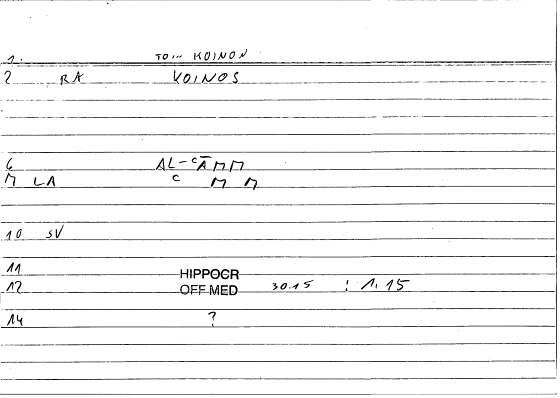 1. TO... KOINON
2 RA KOINOS
6 AL-CAMM
7 LA C M M
10 SV
11 HIPPOCR
12 OFF MED 30.15 : 1.15
14 ?